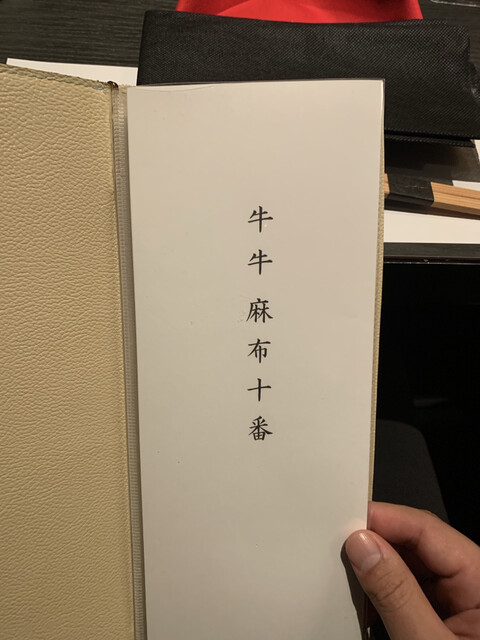 牛牛 麻布十番